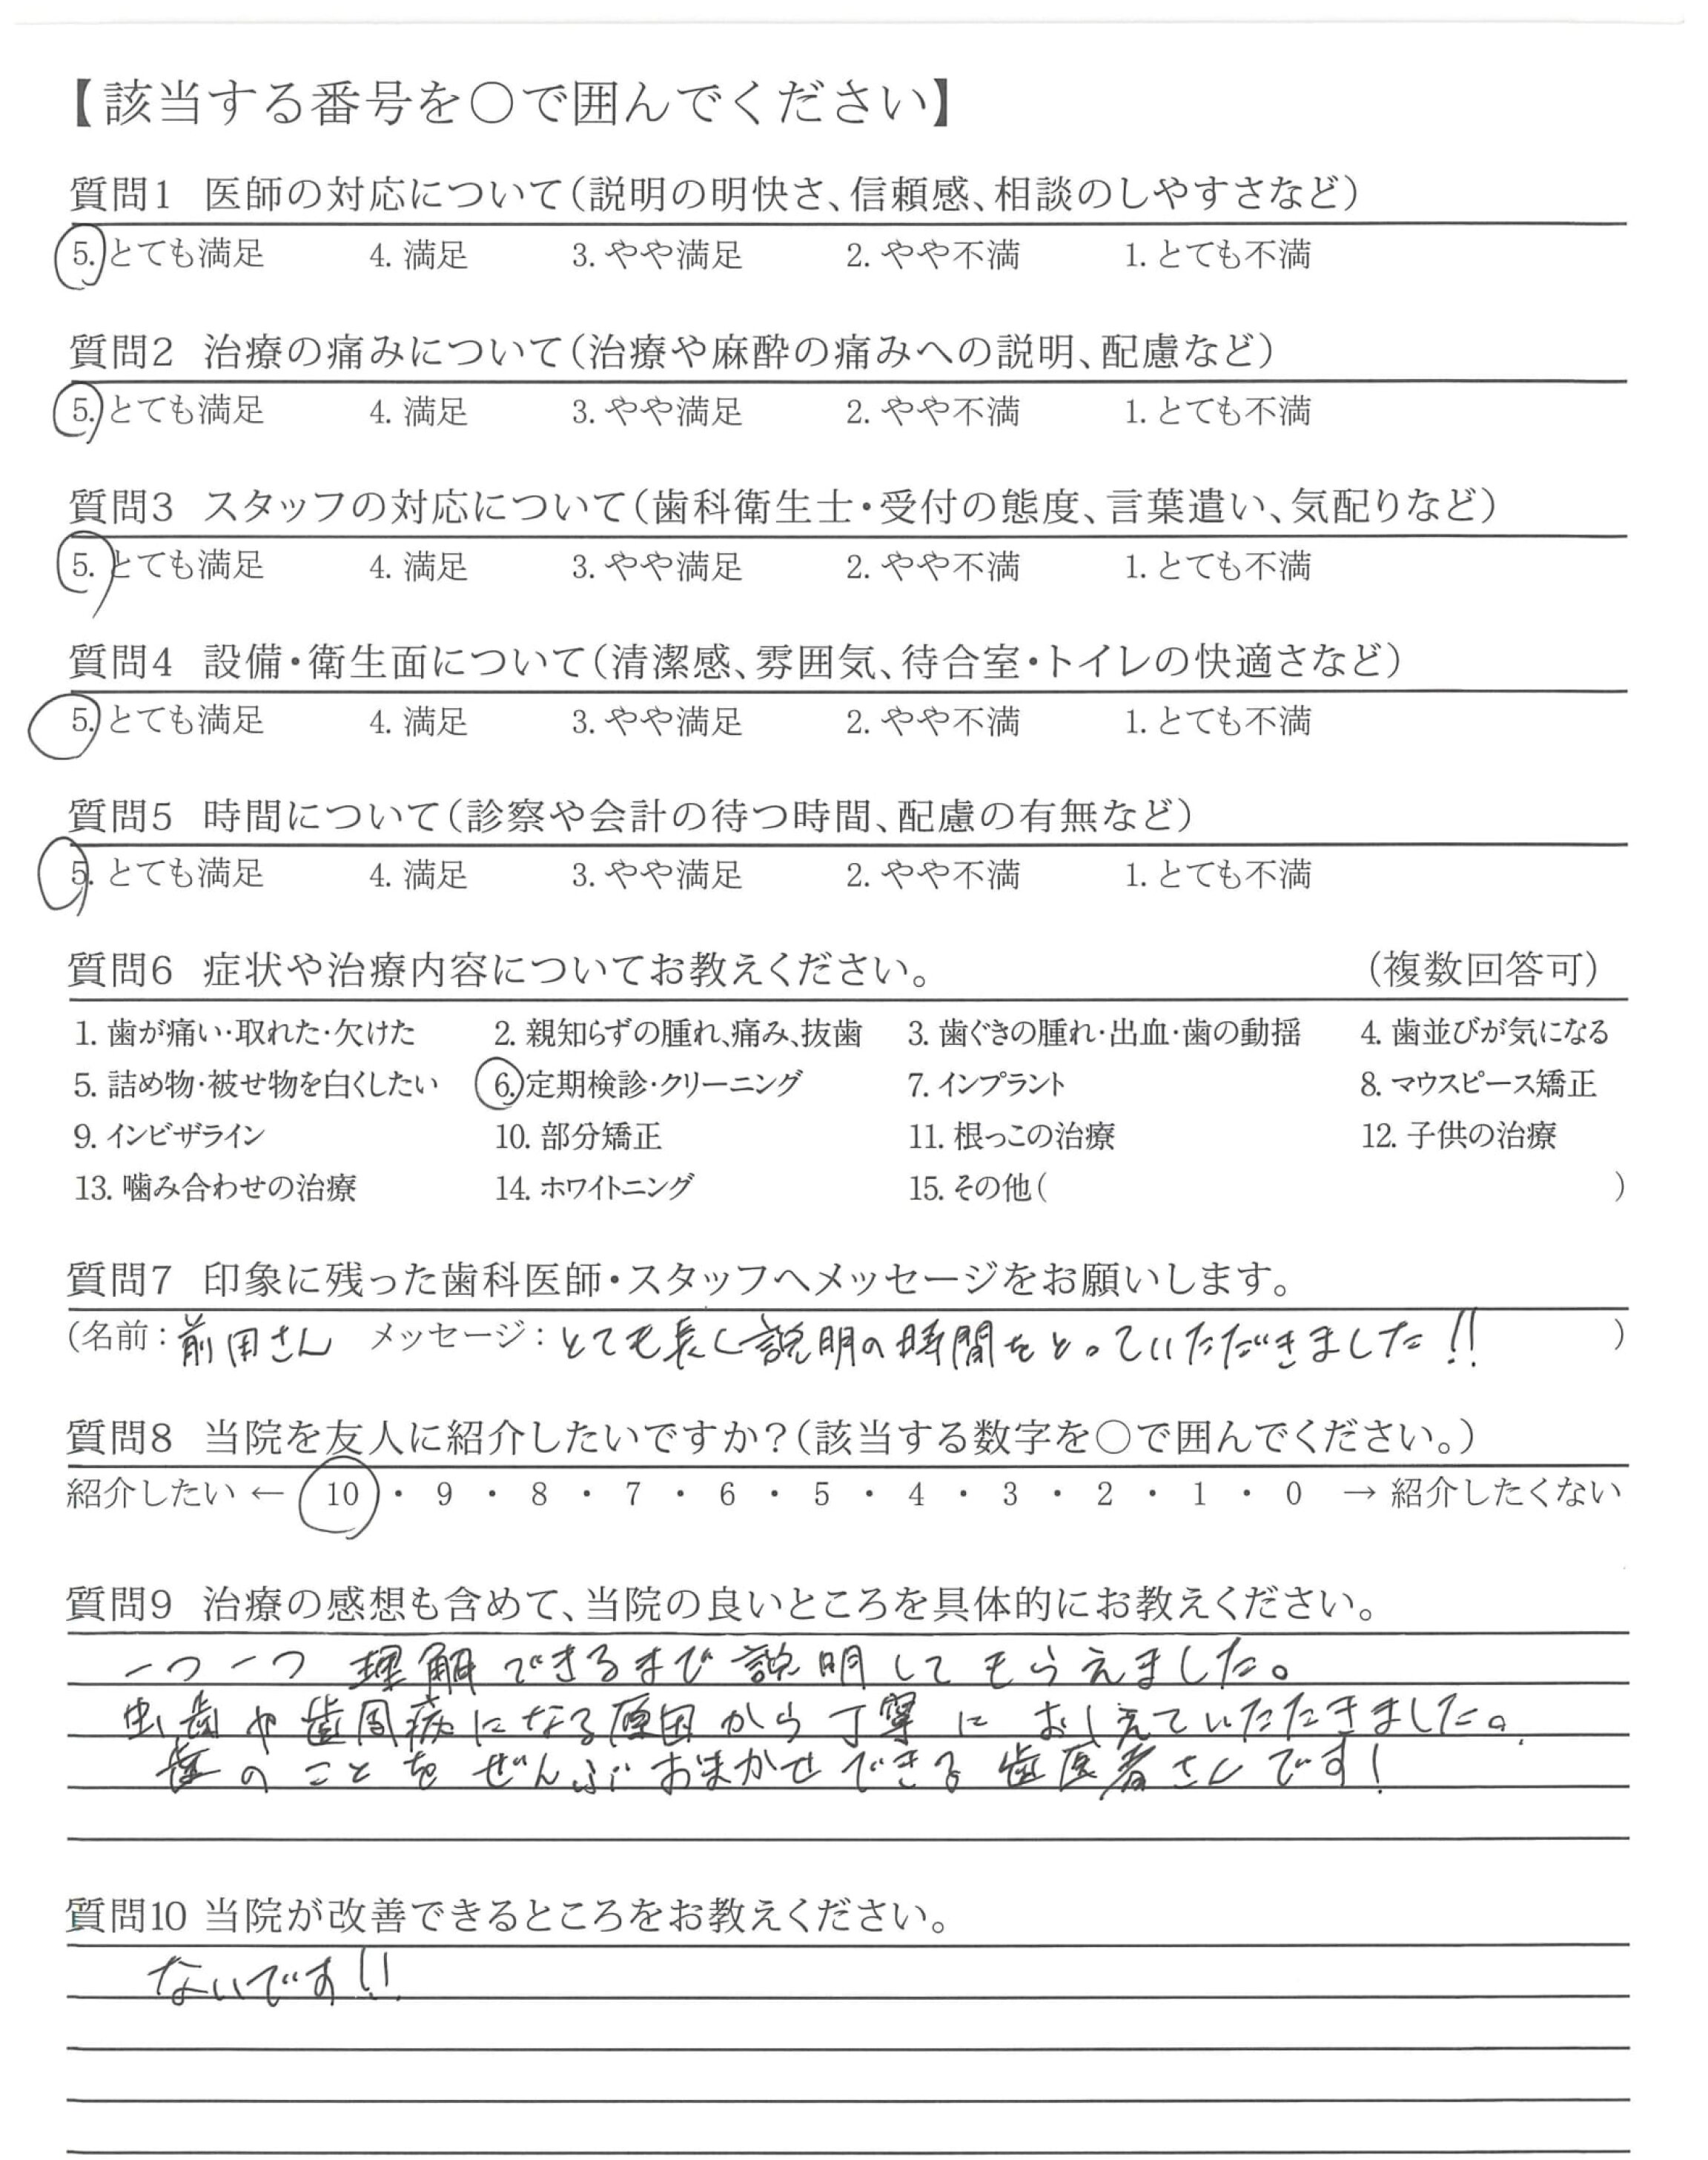 【該当する番号を○で囲んでください】
質問1 医師の対応について(説明の明快さ、信頼感、相談のしやすさなど)
5. とても満足 4. 満足 3. やや満足 2. やや不満 1. とても不満
質問2 治療の痛みについて(治療や麻酔の痛みへの説明、配慮など)
5. とても満足 4. 満足 3. やや満足 2. やや不満 1. とても不満
質問3 スタッフの対応について(歯科衛生士・受付の態度、言葉遣い、気配りなど)
5. とても満足 4. 満足 3. やや満足 2. やや不満 1. とても不満
質問4 設備・衛生面について(清潔感、雰囲気、待合室・トイレの快適さなど)
5. とても満足 4. 満足 3. やや満足 2. やや不満 1. とても不満
質問5 時間について(診察や会計の待つ時間、配慮の有無など)
5. とても満足 4. 満足 3. やや満足 2. やや不満 1. とても不満
質問6 症状や治療内容についてお教えください。 (複数回答可)
1. 歯が痛い・取れた・欠けた 2. 親知らずの腫れ、痛み、抜歯 3. 歯ぐきの腫れ・出血・歯の動揺 4. 歯並びが気になる
5. 詰め物・被せ物を白くしたい 6. 定期検診・クリーニング 7. インプラント 8. マウスピース矯正
9. インビザライン 10. 部分矯正 11. 根っこの治療 12. 子供の治療
13. 噛み合わせの治療 14. ホワイトニング 15. その他( )
質問7 印象に残った歯科医師・スタッフへメッセージをお願いします。
(名前：前田さん メッセージ：とても長く説明の時間をとっていただきました!! )
質問8 当院を友人に紹介したいですか？(該当する数字を○で囲んでください。)
紹介したい ← 10 ・ 9 ・ 8 ・ 7 ・ 6 ・ 5 ・ 4 ・ 3 ・ 2 ・ 1 ・ 0 → 紹介したくない
質問9 治療の感想も含めて、当院の良いところを具体的にお教えください。
一つ一つ 理解できるまで説明してもらえました。
虫歯や歯周病になる原因から丁寧に おしえていただきました。
歯のことをぜんぶおまかせできる歯医者さんです!
質問10 当院が改善できるところをお教えください。
ないです!!